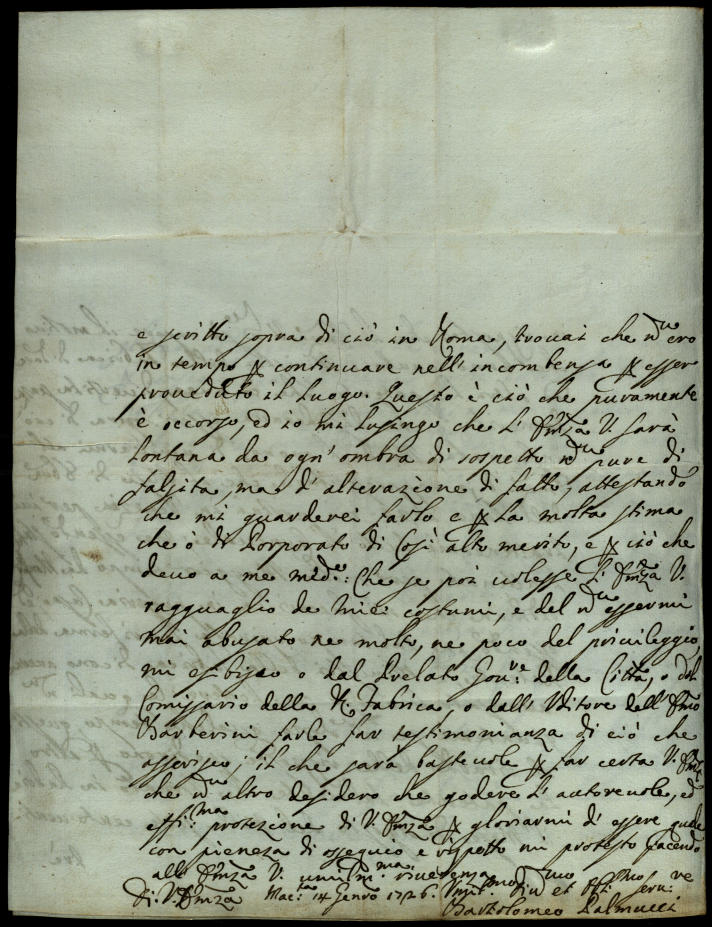 e scritto sopra di ciò in Roma, trovai che ñ ero
in tempo p continuare nell'incombenza p esser
proveduto il luogo. Questo è ciò che puramente
è occorso, ed io mi lusingo che l'Emza V. sarà
lontana da ogn'ombra di sospetto ñ pure di
falsita, ma d'alterazione di fatto, attestando
che mi guarderei farlo e p la molta stima
che ò di Porporato di così alto merito, e p ciò che
devo a me med.º: Che se poi volesse l'Emza V.
ragguaglio de miei costumi, e del ñ essermi
mai abusato ne molto, ne poco del privileggio,
mi esibisco o dal Prelato Gov.re della Città, o dal
Comissario della R. Fabrica, o dall'Uditore dell'Emo
Barberini farle far testimonianza di ciò che
asserisco; il che sarà bastevole p far certa V. Emza
che ñ altro desidero che godere l'autorevole, ed
effi.ma protezione di V. Emza p gloriarmi d'essere quale
con pienezza di ossequio e rispetto mi protesto facendo
all'Emza V. umilm.a riverenza
Di V. Emza Mac.ta 14 Genro 1726. Umil.mo Div et Obl.mo Serv.re
Bartolomeo Palmucci